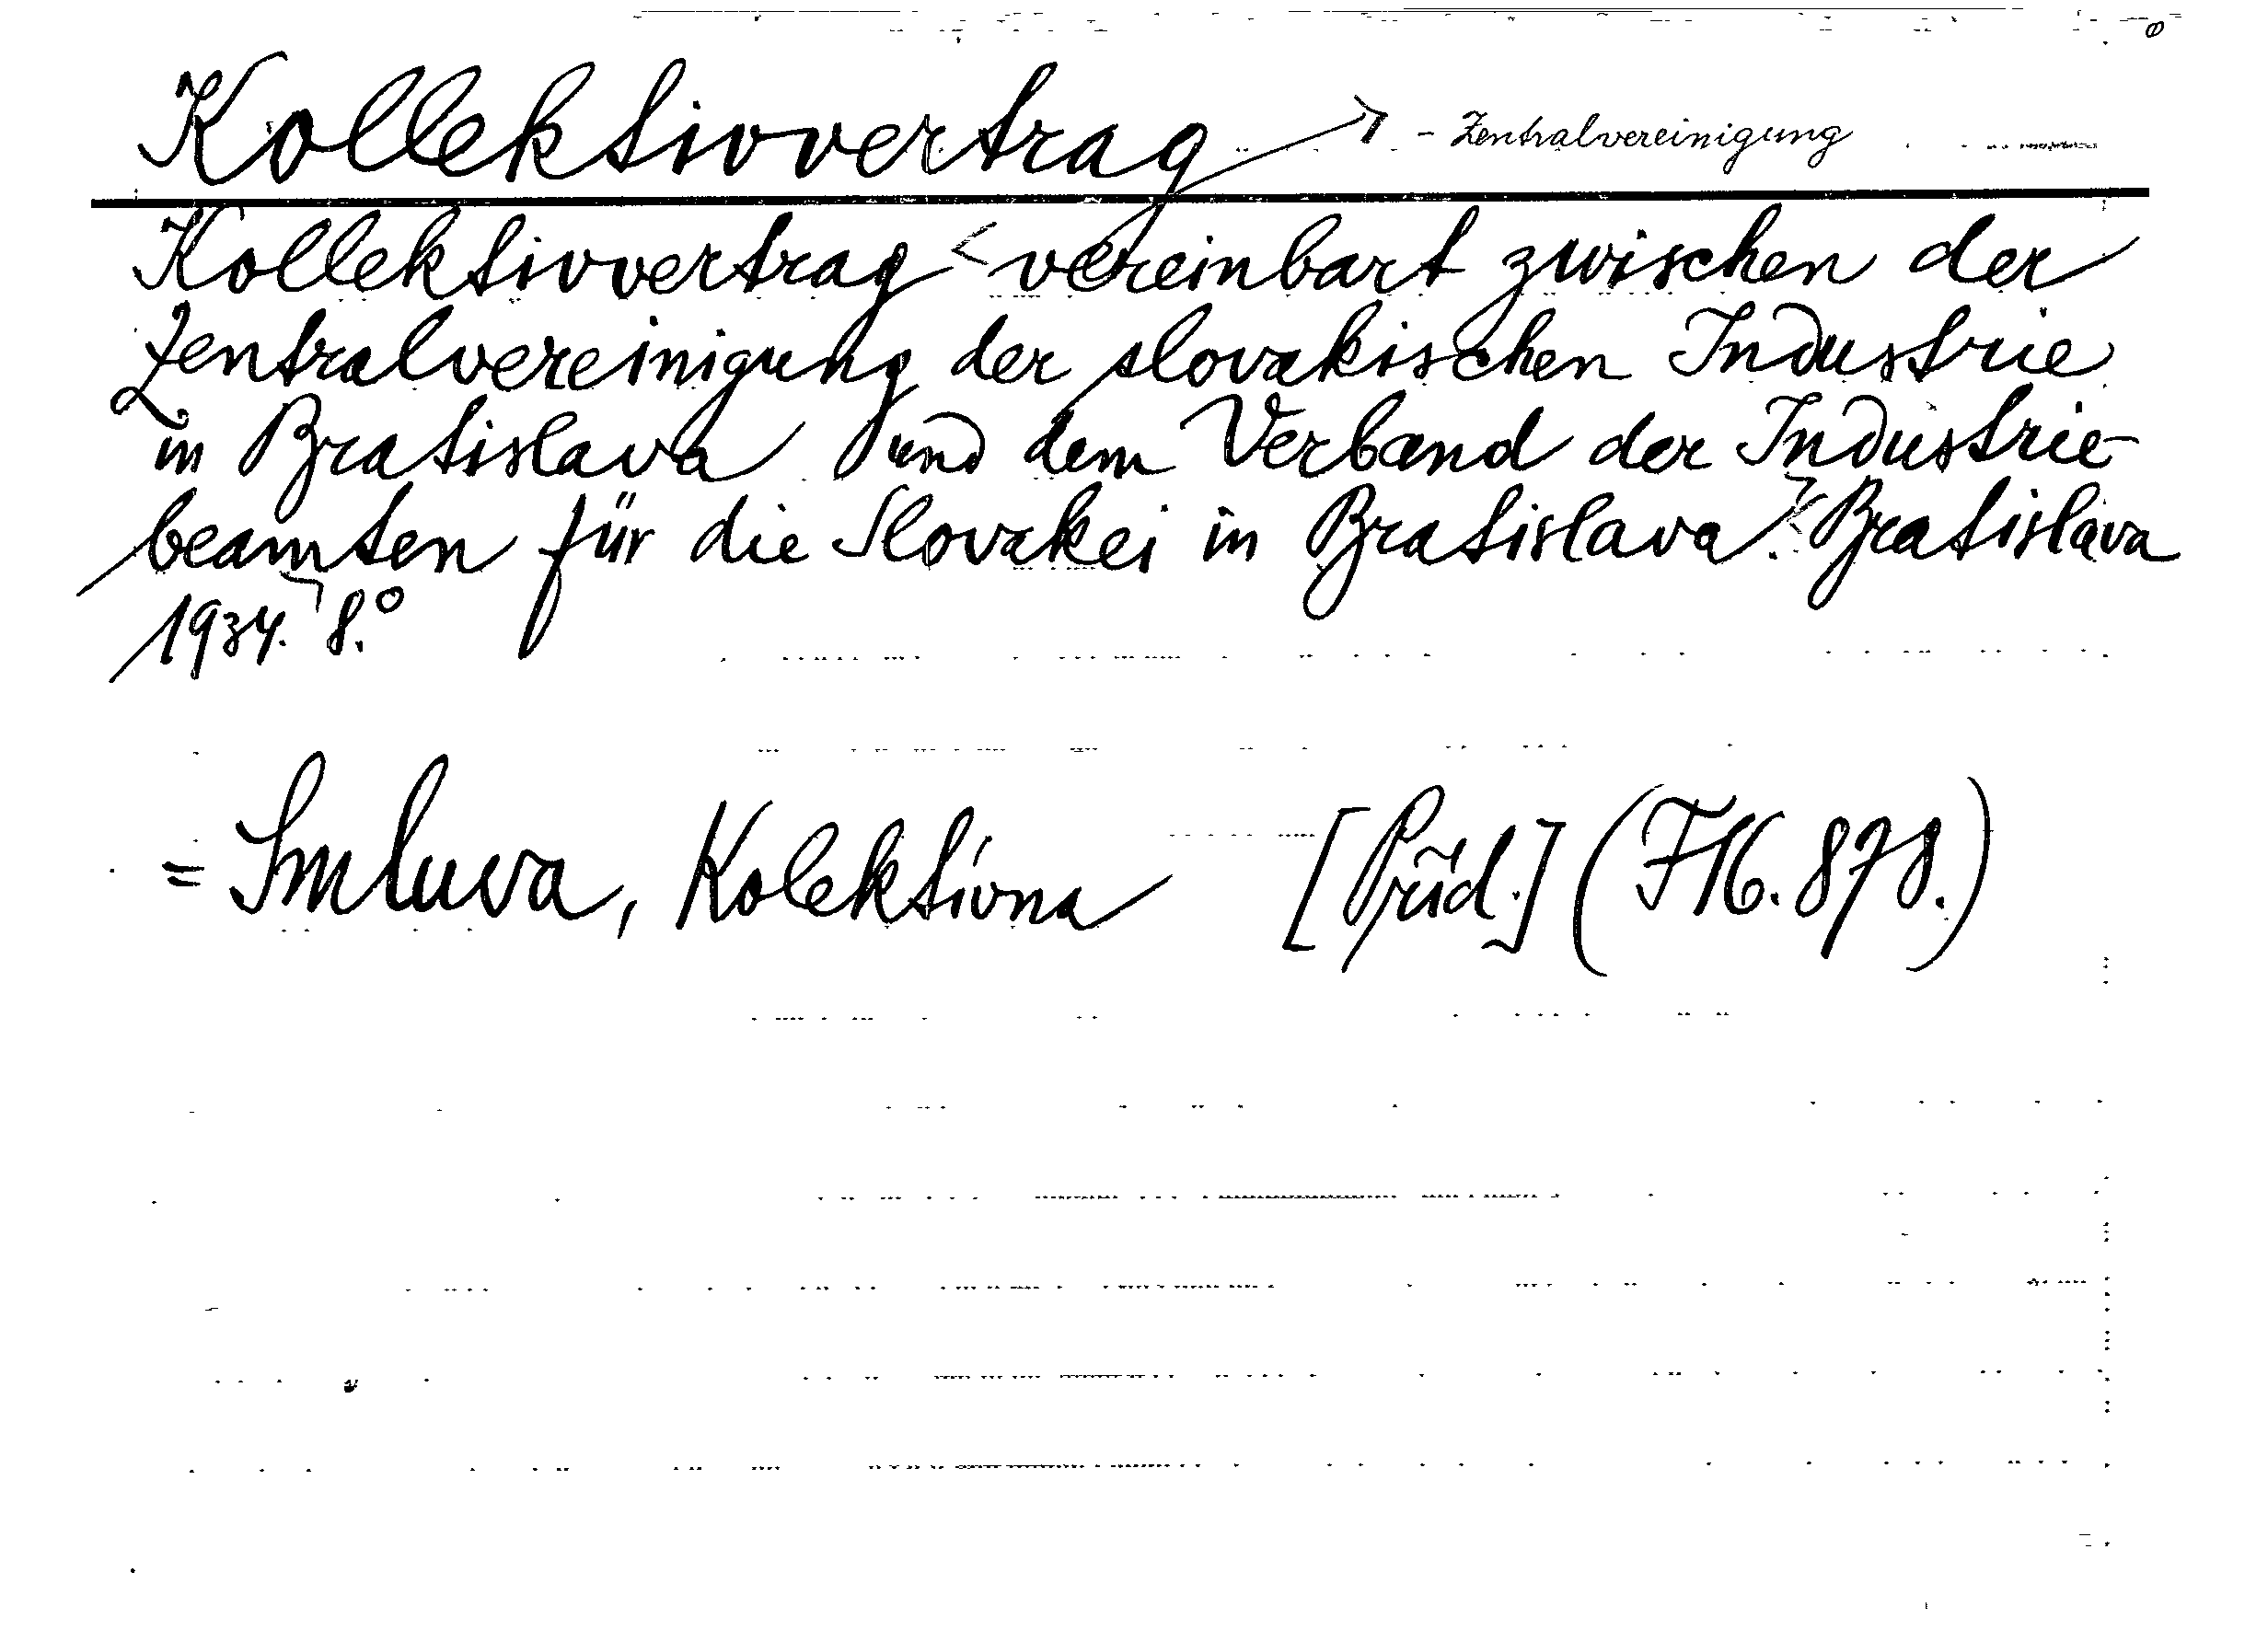 Kollektivvertrag - Zentralvereinigung
Kollektivvertrag < vereinbart zwischen der
Zentralvereinigung der slovakischen Industrie
in Bratislava und dem Verband der Industrie-
beamten für die Slovakei in Bratislava. Bratislava
1934. 8.°
= Smluva, Kolektívna [Příd.] (F16. 878.)